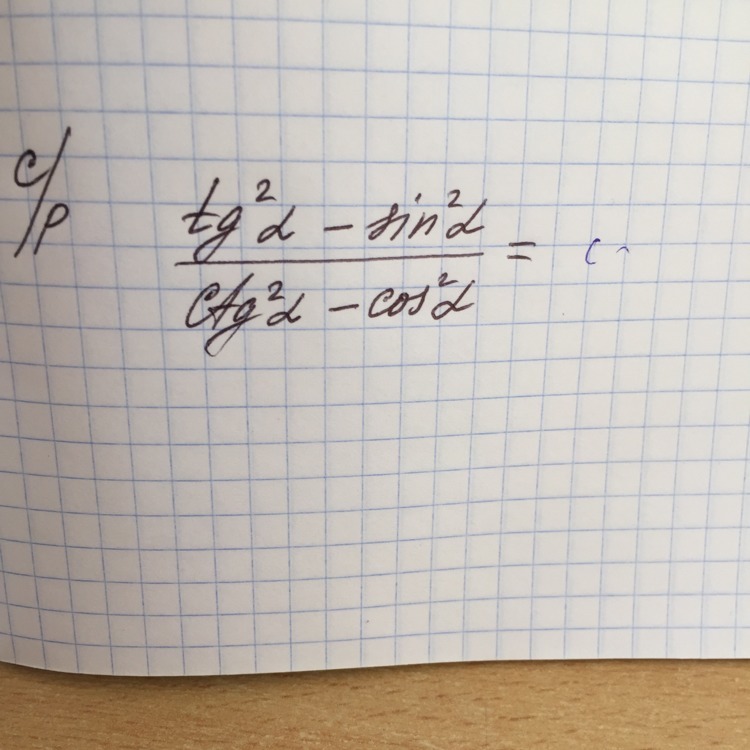 с/р
tg²α − sin²α
ctg²α − cos²α
=